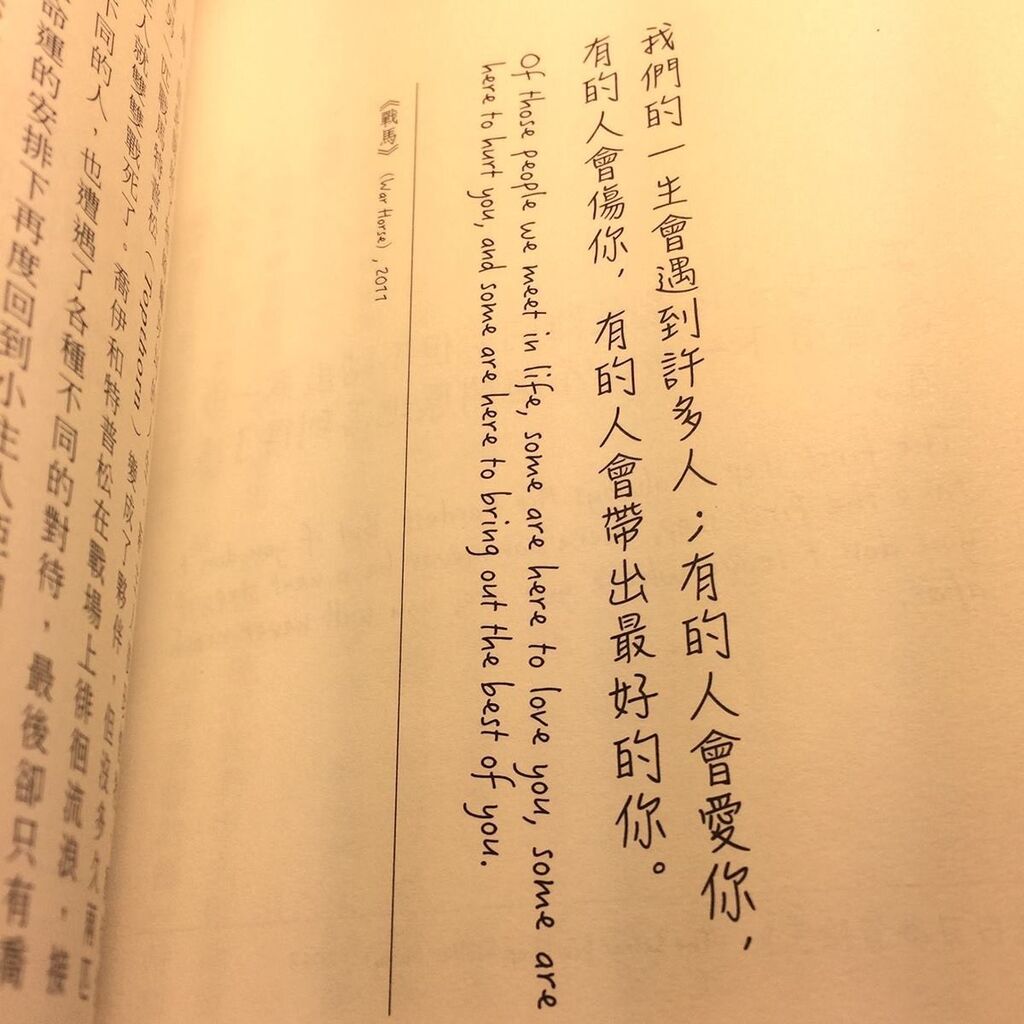 我們的一生會遇到許多人；有的人會愛你，
有的人會傷你，有的人會帶出最好的你。
Of those people we meet in life, some are here to love you, some are
here to hurt you, and some are here to bring out the best of you.
《戰馬》（War Horse）, 2011
人就雙雙戰死了。喬伊和特普松在戰場上徘徊流浪，接
不同的人，也遭遇了各種不同的對待，最後卻只有喬
命運的安排下再度回到小主人